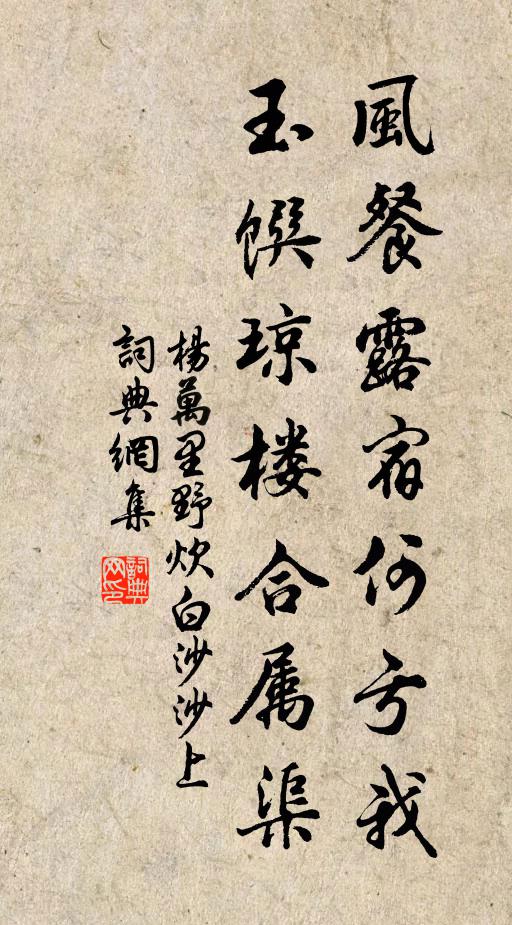 風餐露宿何亏我
玉馔琼楼合属渠
楊萬里野炊白沙沙上
詞典網集
詞典网印